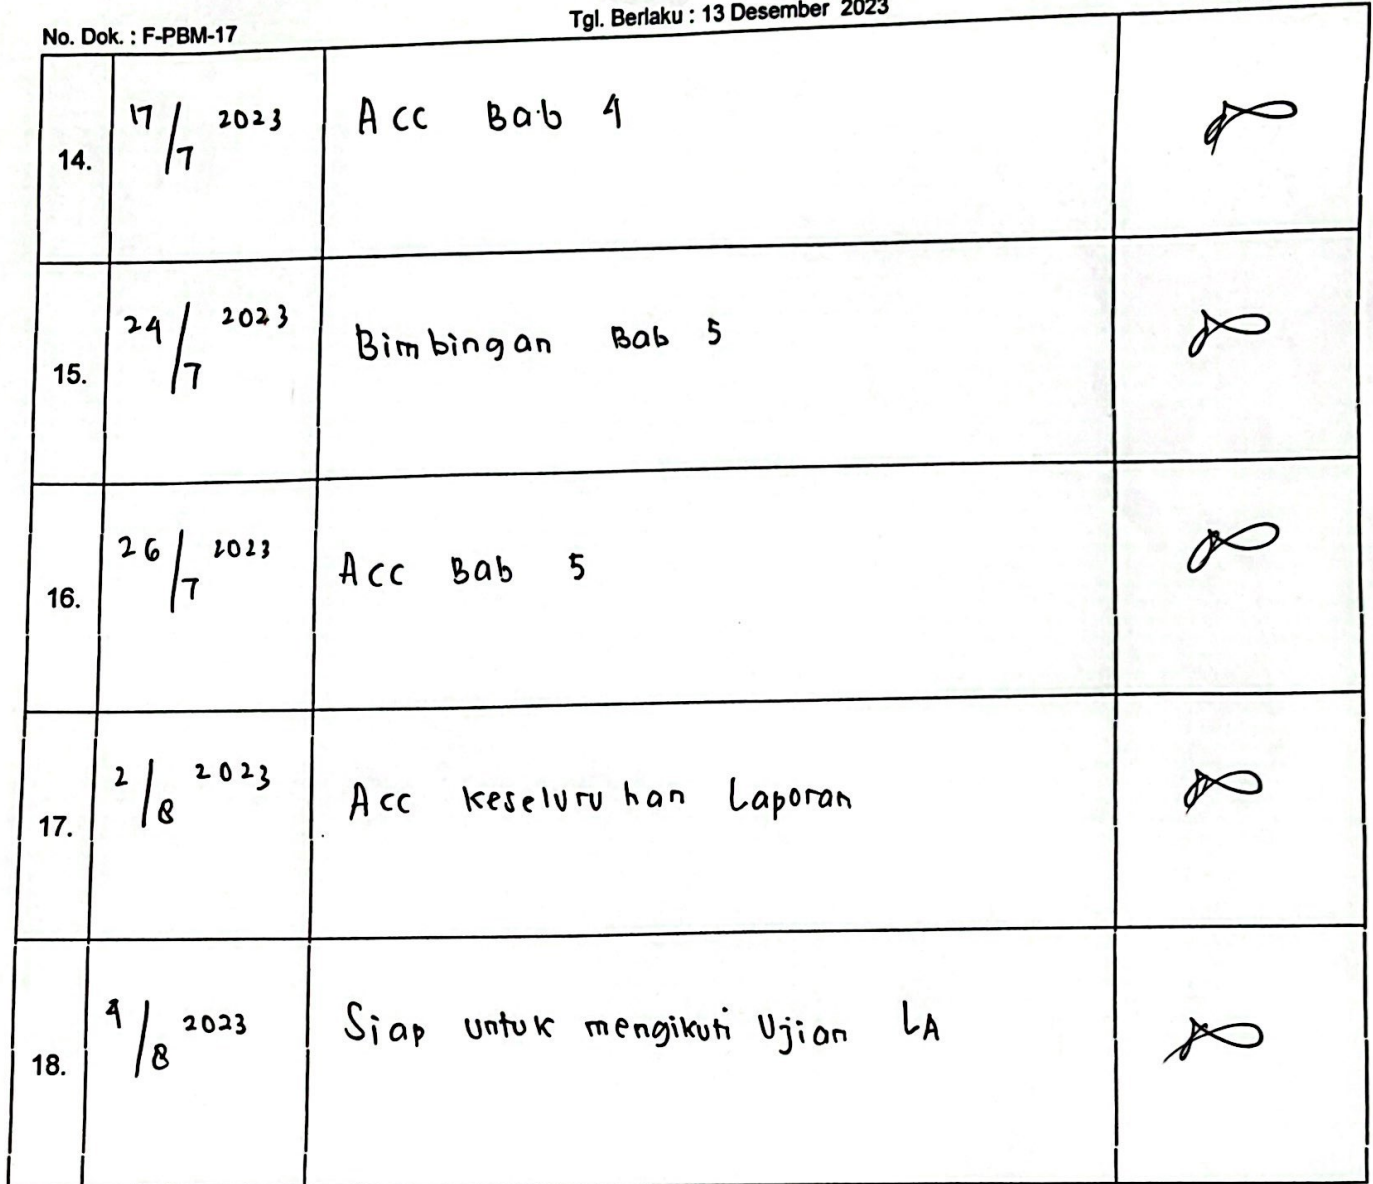 No. Dok. : F-PBM-17
Tgl. Berlaku : 13 Desember 2023
14. 17/7 2023 Acc Bab 4
15. 24/7 2023 Bimbingan Bab 5
16. 26/7 2023 Acc Bab 5
17. 2/8 2023 Acc keseluruhan Laporan
18. 4/8 2023 Siap untuk mengikuti Ujian LA